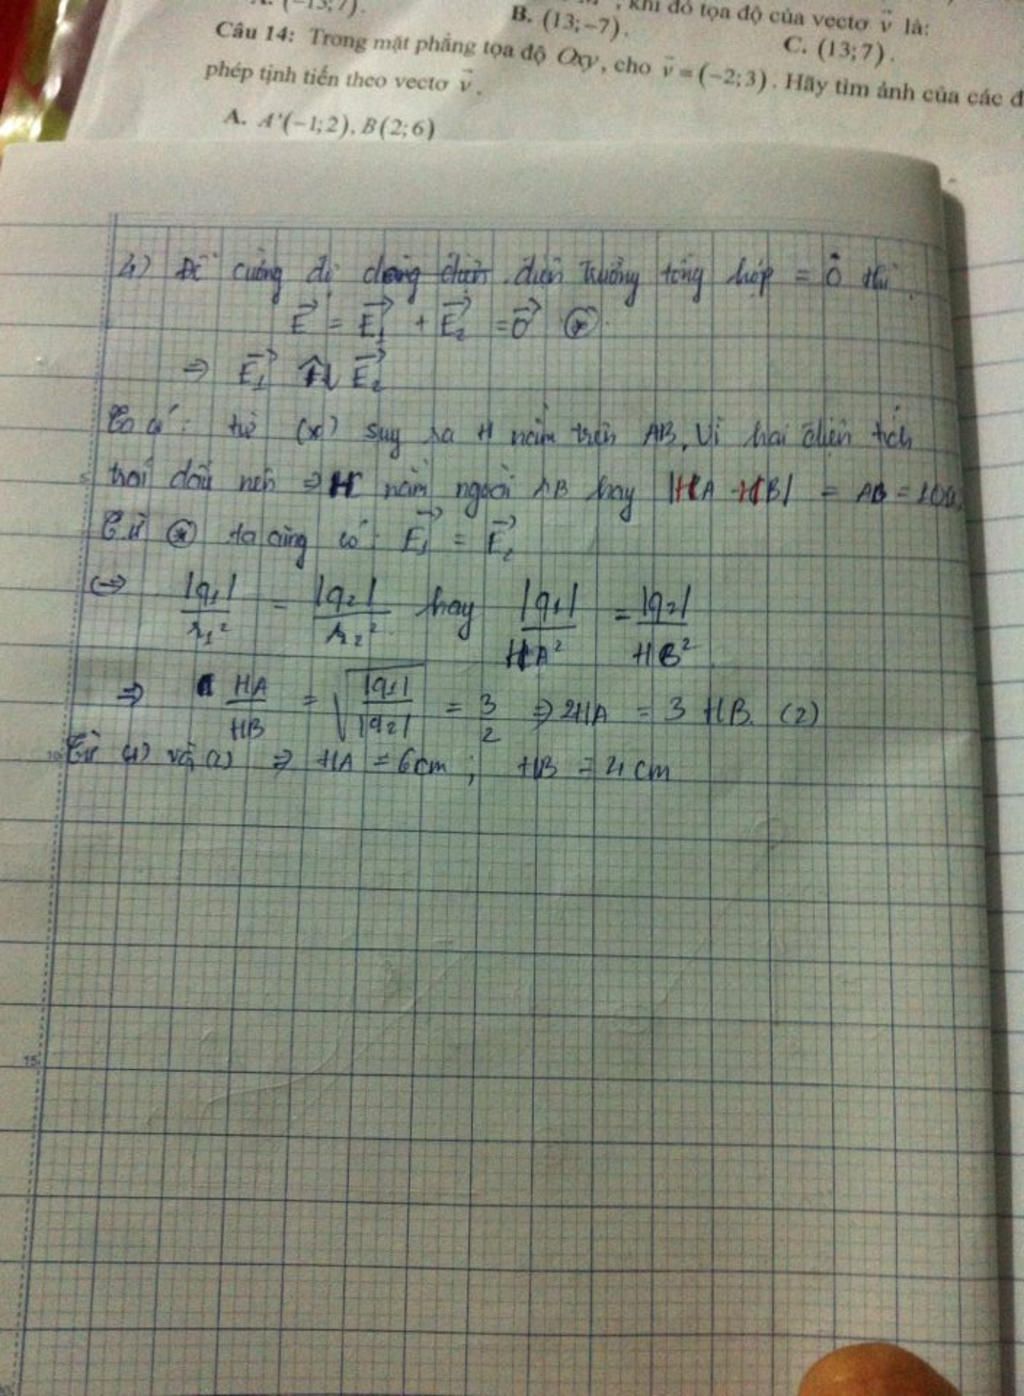 A. (-13;7).
B. (13;-7).
, khi đó tọa độ của vectơ v⃗ là:
C. (13;7).
Câu 14: Trong mặt phẳng tọa độ Oxy, cho v⃗ = (-2;3). Hãy tìm ảnh của các đ
phép tịnh tiến theo vectơ v⃗.
A. A'(-1;2), B(2;6)
4) Để cường độ dòng điện điện trường tổng hợp = 0⃗ thì
E⃗ = E₁⃗ + E₂⃗ = 0⃗ (*)
⇒ E₁⃗ ↑↓ E₂⃗
Ta có: từ (*) suy ra H nằm trên AB. Vì hai điện tích
trái dấu nên ⇒ H nằm ngoài AB hay |HA - HB| = AB = 10
Từ (*) ta cũng có: E₁⃗ = E₂⃗
⇔ |q₁|/r₁² = |q₂|/r₂² hay |q₁|/HA² = |q₂|/HB²
⇒ HA/HB = √(|q₁|/|q₂|) = 3/2 ⇒ 2HA = 3 HB. (2)
Từ (1) và (2) ⇒ HA = 6cm; HB = 4cm
10
15